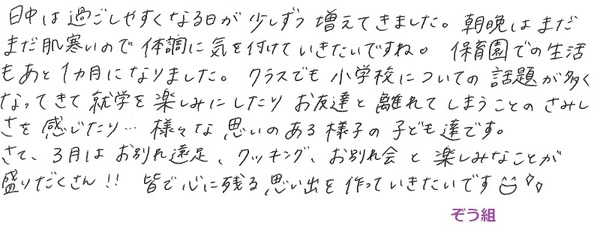 日中は過ごしやすくなる日が少しずつ増えてきました。朝晩はまだ
まだ肌寒いので体調に気を付けていきたいですね。保育園での生活
もあと1カ月になりました。クラスでも小学校についての話題が多く
なってきて就学を楽しみにしたりお友達と離れてしまうことのさみし
さを感じたり…様々な思いのある様子の子ども達です。
さて、3月はお別れ遠足、クッキング、お別れ会と楽しみなことが
盛りだくさん!!皆で心に残る思い出を作っていきたいです
ぞう組